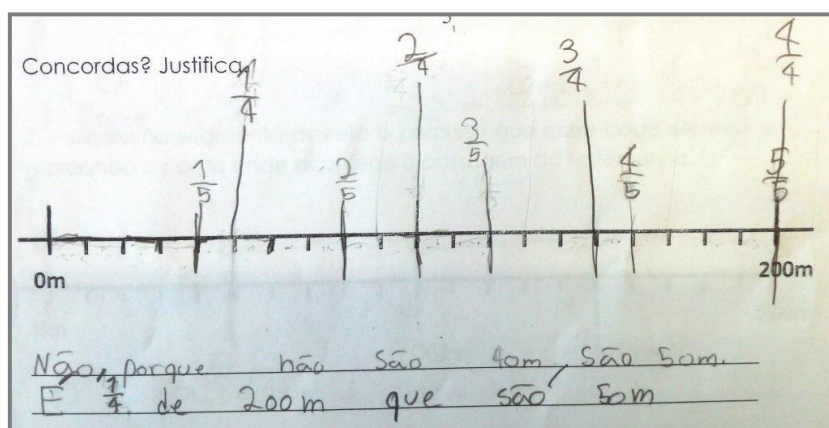 Concordas? Justifica.
1/4 2/4 3/4 4/4
1/5 2/5 3/5 4/5 5/5
0m 200m
Não, porque não são 40m, são 50m.
É 1/4 de 200m que são 50m